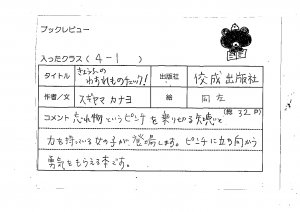 ブックレビュー
入ったクラス（4－1）
タイトル きょうふのわすれものチェック！ 出版社 佼成出版社
作者／文 スギヤマ カナヨ 絵 同左
コメント 忘れ物というピンチを乗り切る知恵と（総32P）
力を持っている女の子が、登場します。ピンチに立ち向かう
勇気をもらえる本です。